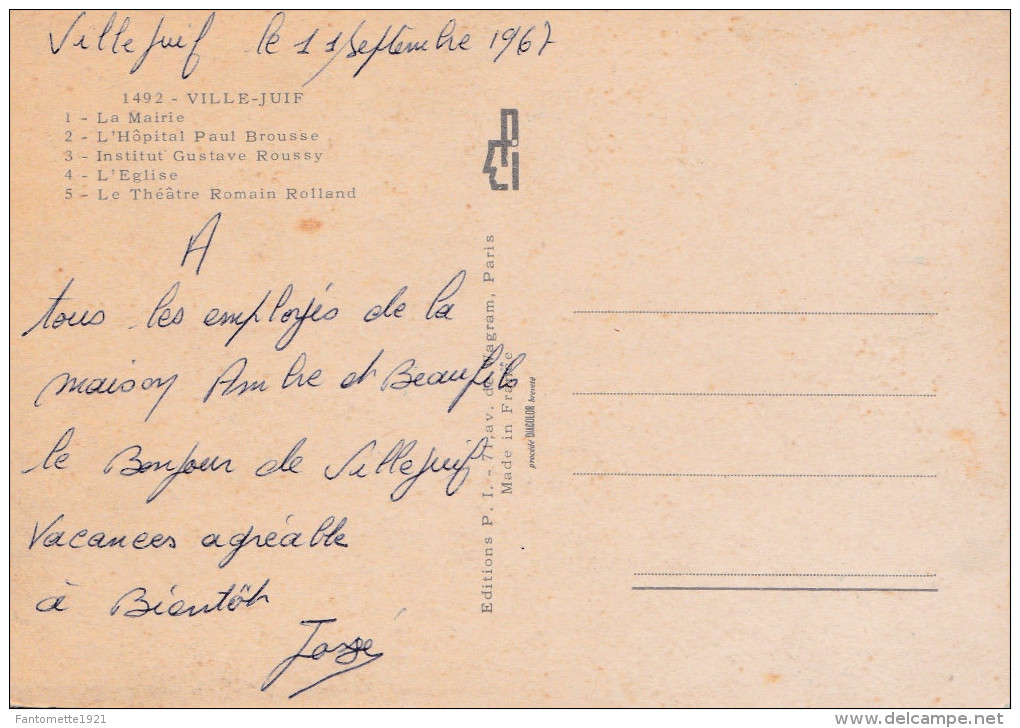 Villejuif le 11 septembre 1967
1492 - VILLE-JUIF
1 - La Mairie
2 - L'Hôpital Paul Brousse
3 - Institut Gustave Roussy
4 - L'Eglise
5 - Le Théâtre Romain Rolland
A
tous les employés de la
maison Ambre et Beaufils
le Bonjour de Villejuif
Vacances agréable
à Bientôt
Editions P. I. - 71, av. de Wagram, Paris
Made in France
procédé DIACOLOR breveté
Fantomette1921
delcampe.net